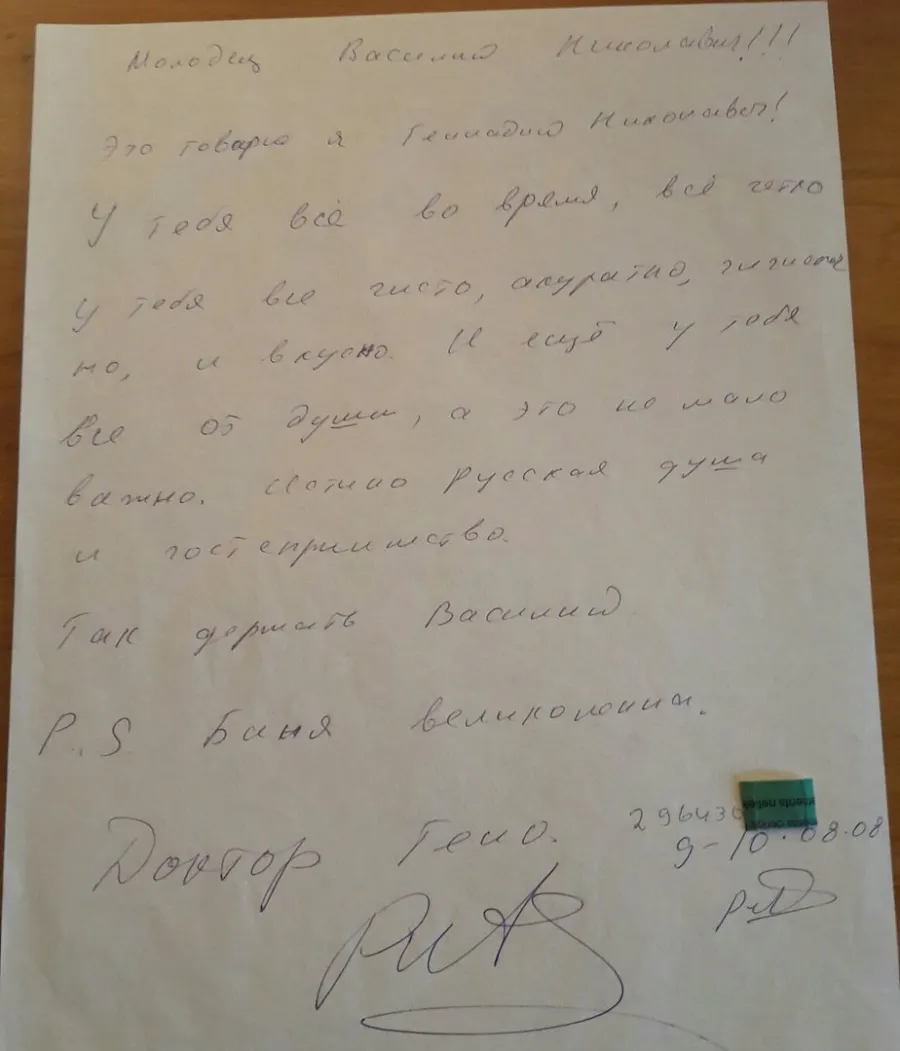 Молодец Василий Николавич!!!
Это говарю я Геннадий Николавич!
У тебя всё во время, всё четко
у тебя все чисто, акуратно, гигиенич
но, и вкусно. И ещё у тебя
все от души, а это не мало
важно. Истино русская душа
и гостеприимство.
Так держать Василий
P.S Баня великолепна.
Доктор Гено.
296430
9-10.08.08